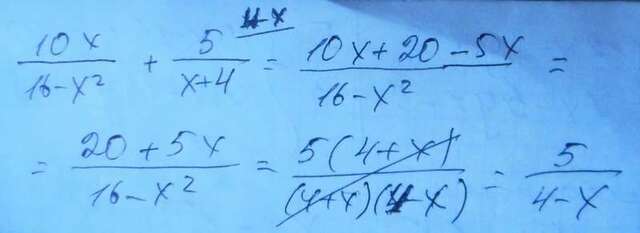 10x/(16-x²) + 5/(x+4) ^(4-x) = (10x+20-5x)/(16-x²) =
= (20+5x)/(16-x²) = 5(4+x)/((4+x)(4-x)) = 5/(4-x)